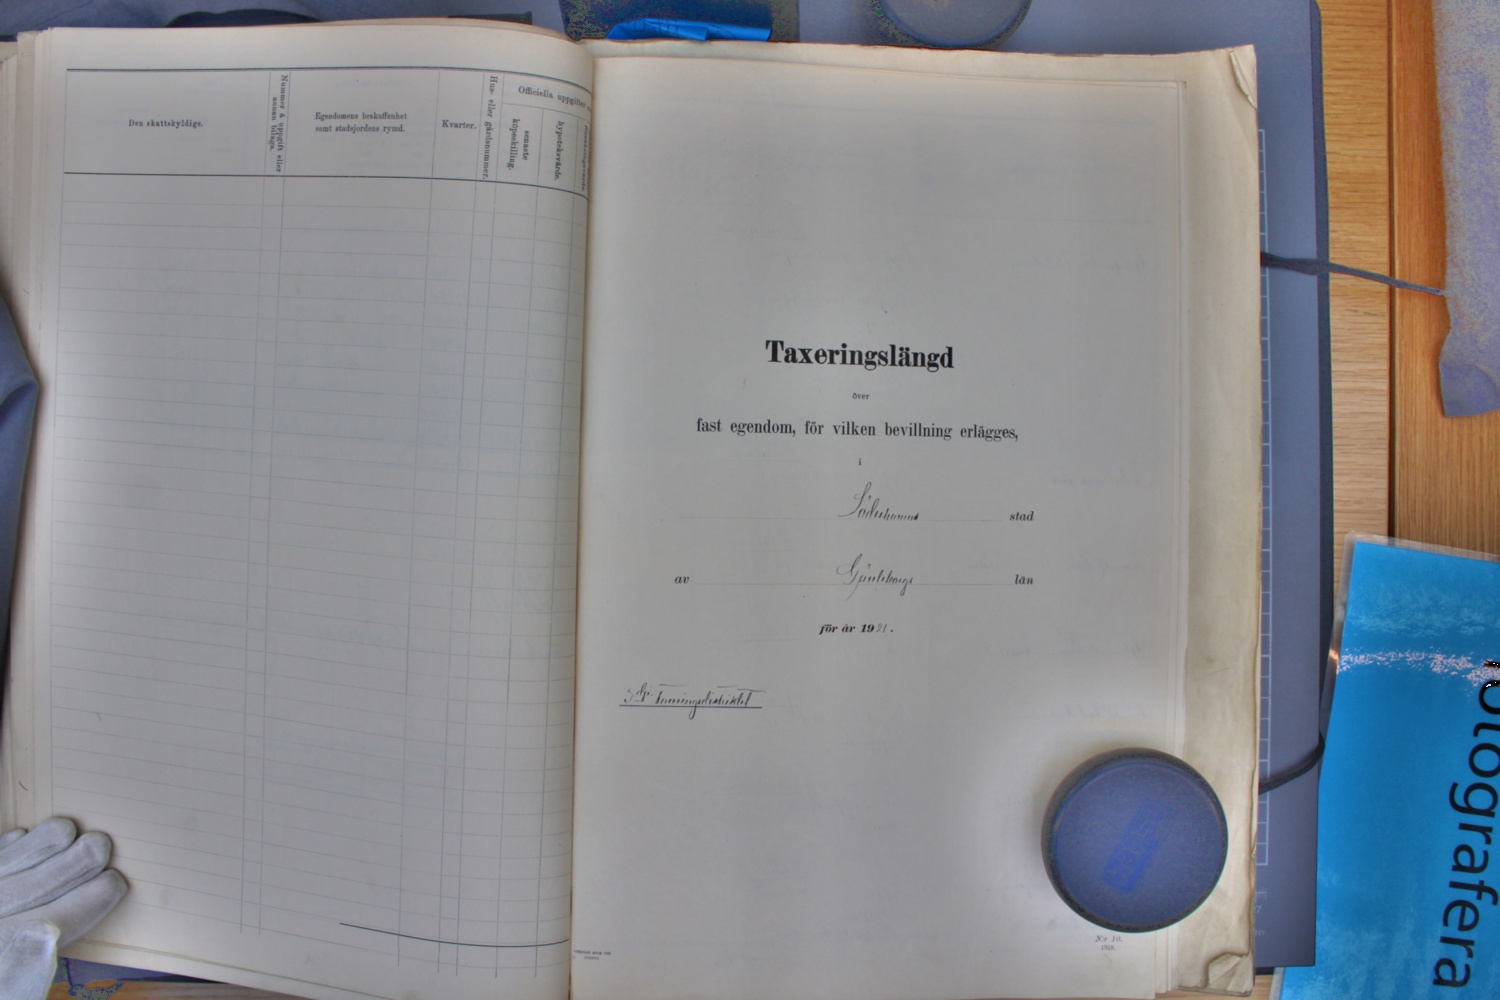 Den skattskyldige.
Nummer å uppgift eller annan bilaga.
Egendomens beskaffenhet
samt stadsjordens rymd.
Kvarter.
Hus- eller gårdsnummer.
Officiella uppgifter
senaste köpeskilling.
hypoteksvärde.
Taxeringslängd
över
fast egendom, för vilken bevillning erlägges,
i
Söderhamns stad
av Gävleborgs län
för år 1921.
3dje taxeringsdistriktet
N:r 10.
1918.
fotografera